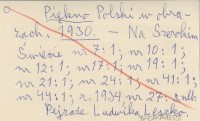 Piękno Polski w obra-
zach: 1930. – Na Szerokim
Świecie nr 7:1; nr 10:1;
nr 12:1; nr 17:1; nr 19:1;
nr 21:1; nr 24:1; nr 41:1;
nr 44:1; r. 1934 nr 27:
Pejzaże Ludwika